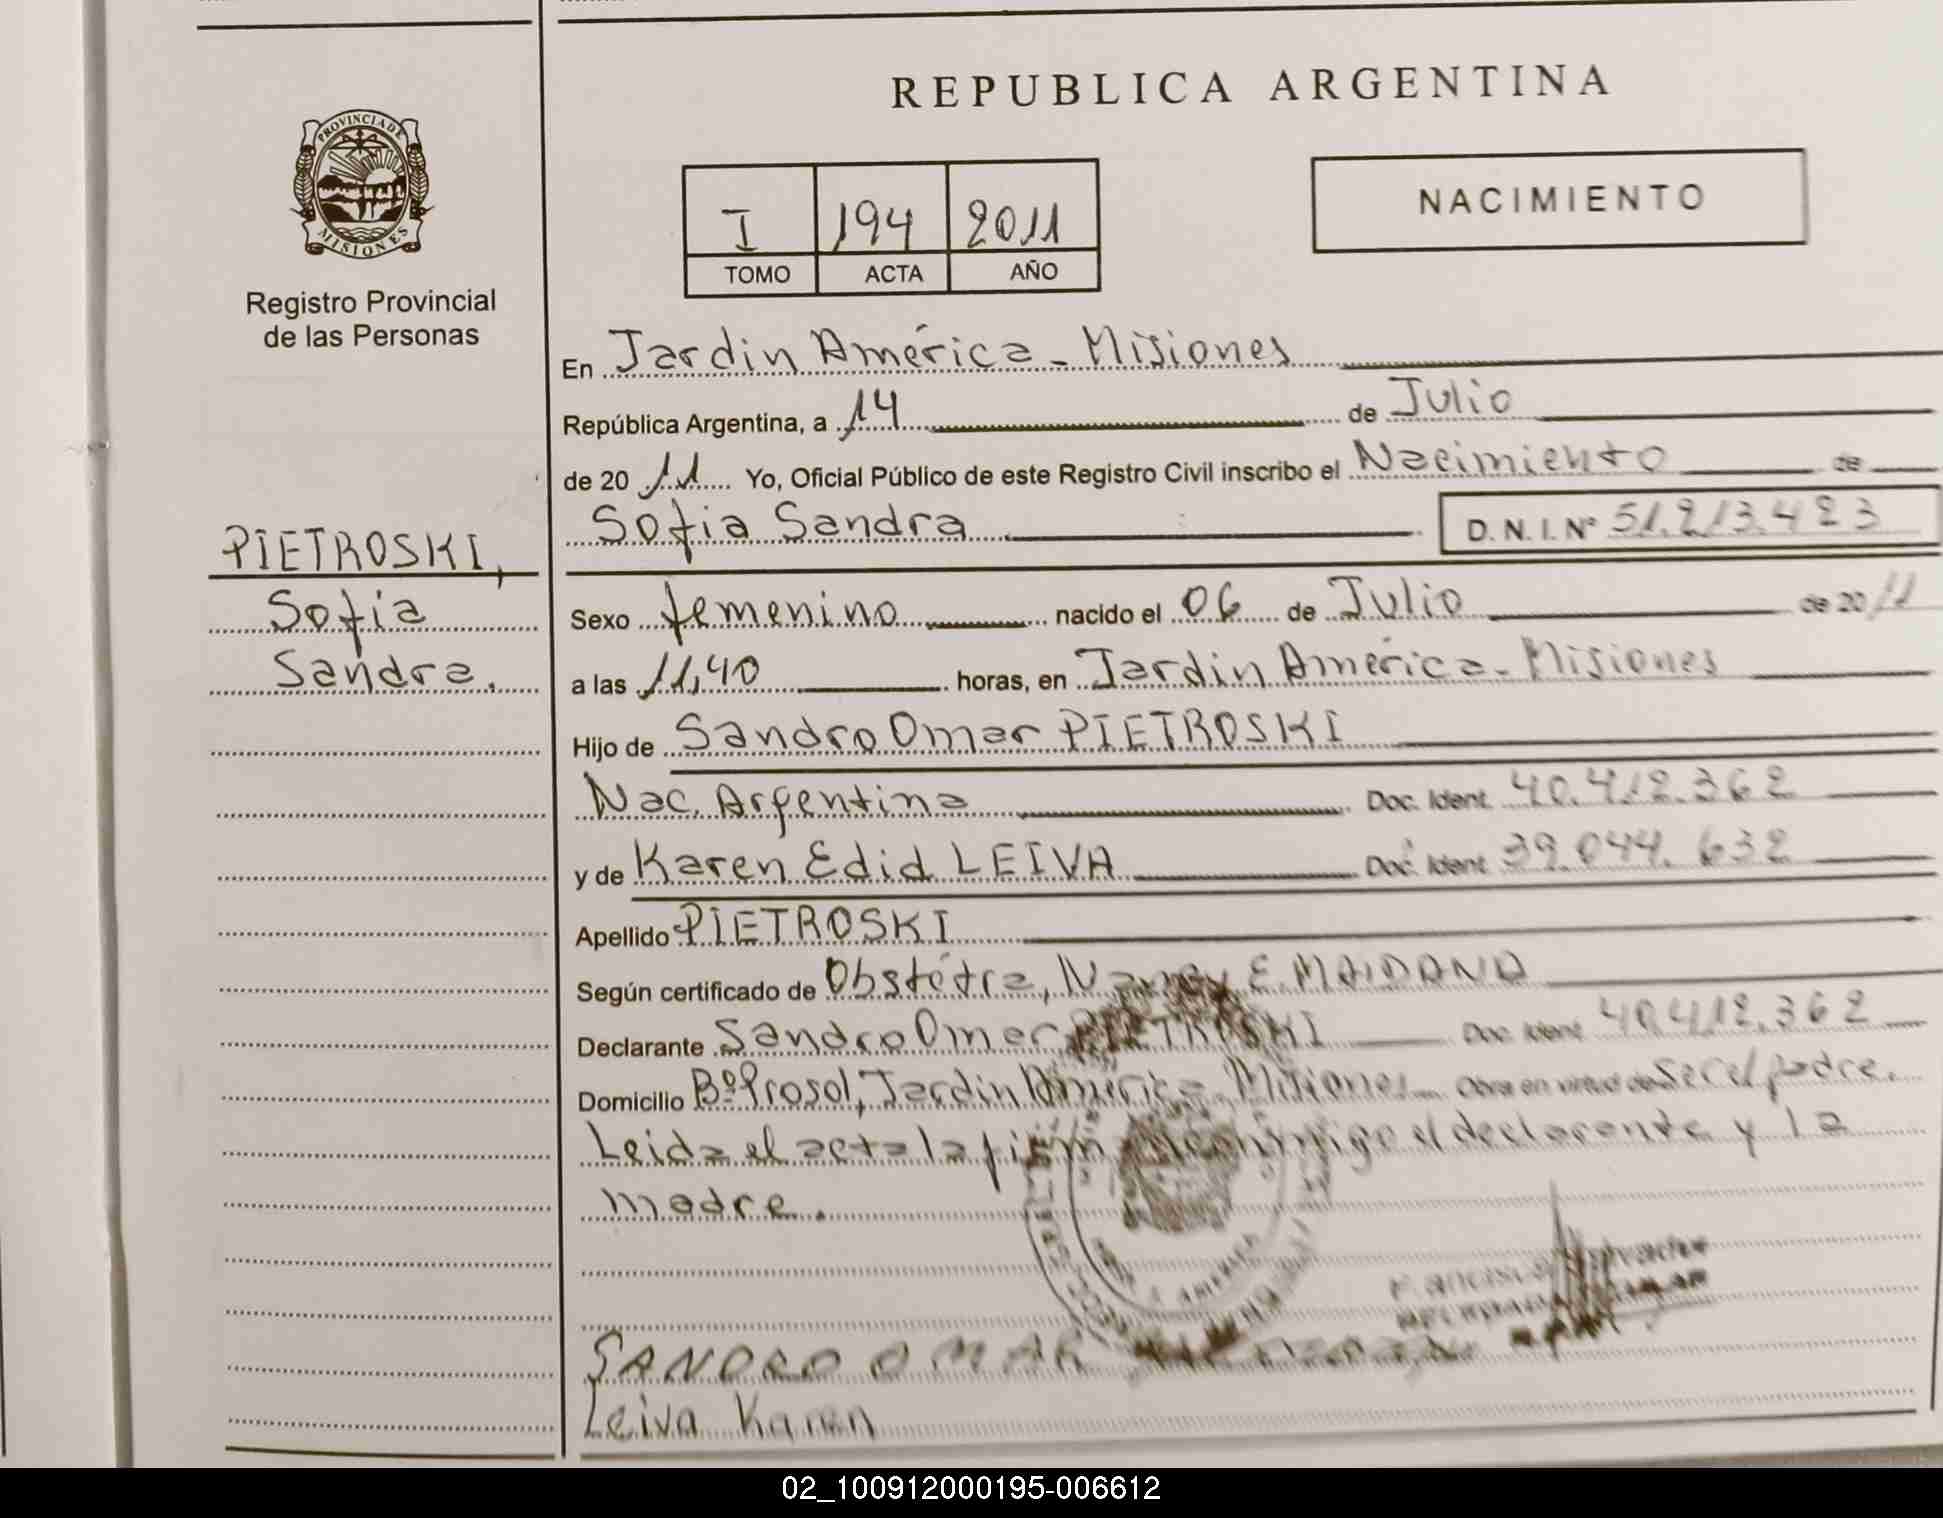 REPUBLICA ARGENTINA
PROVINCIA DE
MISIONES
Registro Provincial
de las Personas
NACIMIENTO
I 194 2011
TOMO ACTA AÑO
En Jardin América - Misiones
República Argentina, a 14 de Julio
de 20 11 Yo, Oficial Público de este Registro Civil inscribo el Nacimiento de
Sofia Sandra D. N. I. Nº 51.213.423
PIETROSKI,
Sofia
Sandra.
Sexo femenino nacido el 06 de Julio de 20 11
a las 11,40 horas, en Jardin América - Misiones
Hijo de Sandro Omar PIETROSKI
Nac. Argentina Doc. Ident. 40.412.362
y de Karen Edid LEIVA Doc. Ident. 39.044.632
Apellido PIETROSKI
Según certificado de Obstétra, Nancy E. MAIDANA
Declarante Sandro Omar PIETROSKI Doc. Ident. 40.412.362
Domicilio Bº Prosol, Jardin América - Misiones Obra en virtud de Ser el padre.
Leida el acta la firma conmigo el declarante y la
madre.
SANDRO OMAR
Leiva Karen
02_100912000195-006612